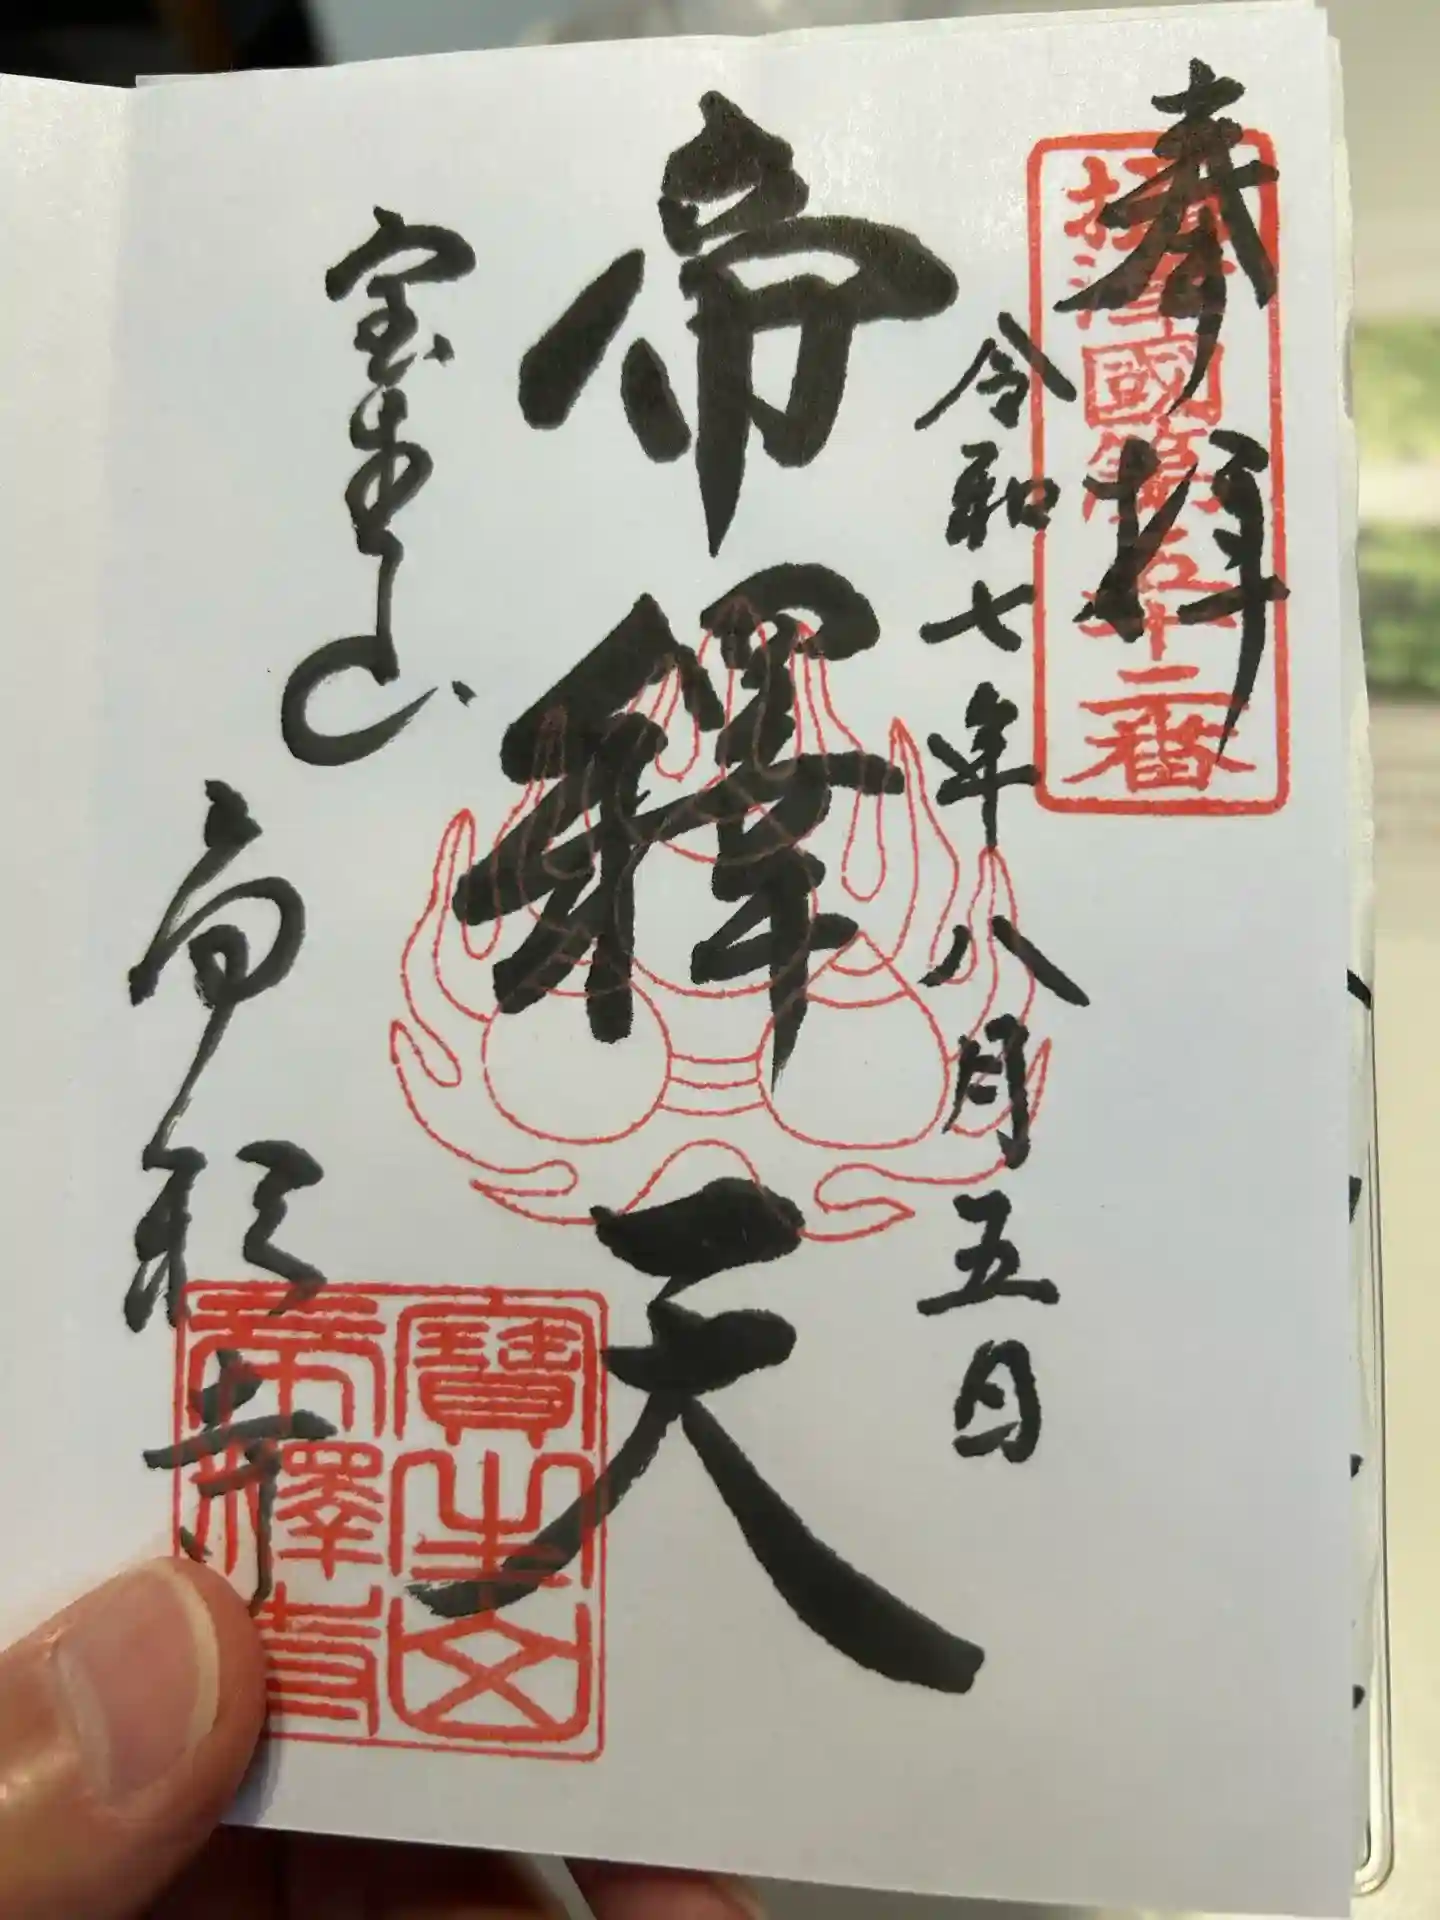 奉拝
摂津國第五十二番
令和七年八月五日
帝釋天
宝生山
帝釈寺
寶生山
帝釋寺